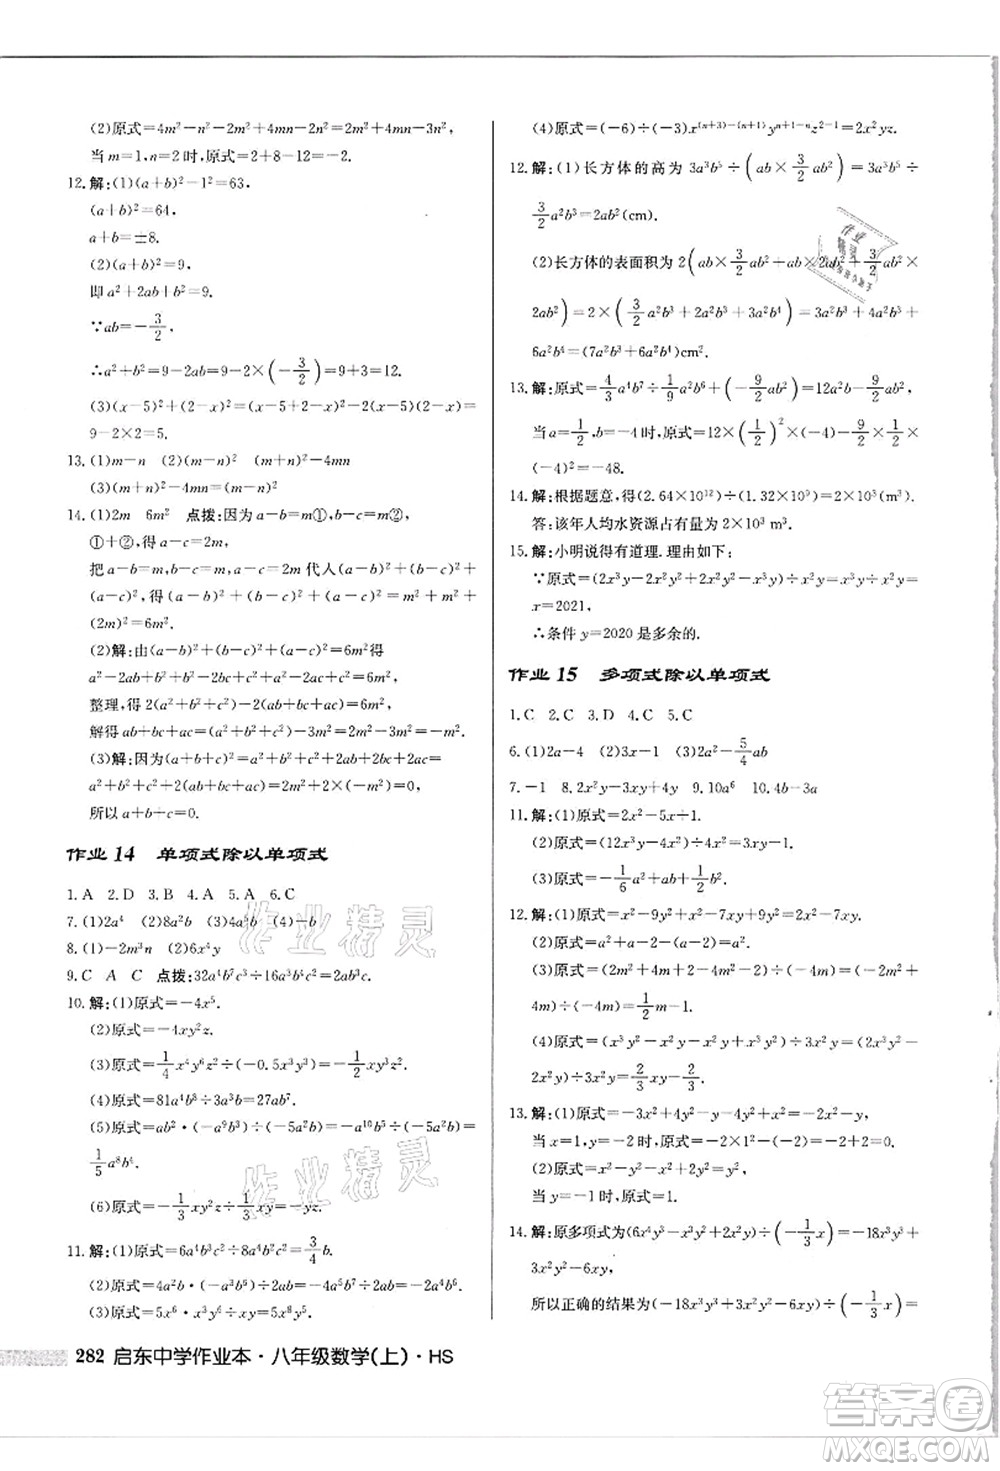 (2)原式=4m²-n²-2m²+4mn-2n²=2m²+4mn-3n².
当 m=1,n=2 时,原式=2+8-12=-2.
12.解:(1)(a+b)²-1²=63,
(a+b)²=64,
a+b=±8.
(2)(a+b)²=9,
即 a²+2ab+b²=9.
∵ab=-3/2,
∴a²+b²=9-2ab=9-2×(-3/2)=12.
(3)(x-5)²+(2-x)²=(x-5+2-x)²-2(x-5)(2-x)=
9-2×2=5.
13.(1)m-n (2)(m-n)² (m+n)²-4mn
(3)(m-n)²=(m+n)²-4mn
14.(1)2m 6m² 点拨:因为 a-b=m①,b-c=m②,
①+②,得 a-c=2m.
把 a-b=m,b-c=m,a-c=2m 代人(a-b)²+
(b-c)²+(a-c)²,得(a-b)²+(b-c)²+(a-c)²=m²+m²+
(2m)²=6m².
(2)解:由(1)可得(a-b)²+(b-c)²+(a-c)²=6m²,
a²-2ab+b²+b²-2bc+c²+a²-2ac+c²=6m²,
整理,得2(a²+b²+c²)-2(ab+bc+ac)=6m²,
解得 ab+bc+ac=1-3m².
(3)解:因为(a+b+c)²=a²+2ab+b²+2bc+2ac+c²=
a²+b²+c²+2(ab+bc+ac)=1+2×(-1/2)=0,
所以 a+b+c=0.
作业 14 单项式除以单项式
1.A 2.D 3.B 4.A 5.A 6.C
7.(1)2a⁴ (2)8a²b (3)4a²b (4)-b
8.(1)-2m³n (2)6x⁴y
9.C A C 点拨:32a⁴b⁷c÷16a³b⁴=2ab³c.
10.解:(1)原式=-4x⁵.
(2)原式=-4xy²z.
(3)原式=1/4x⁴y⁶z²÷(-0.5x³y³)=-1/2xy³z².
(4)原式=81a⁴b⁸÷3a³b²=27ab⁶.
(5)原式=a²b⁴·(-a⁹b³)÷(-5a³b³)=-a¹¹b⁷÷(-5a³b³)=
1/5a⁸b⁴.
(6)原式=-1/3xy²z÷1/3xy=-yz.
11.解:(1)原式=6a⁴b³÷8a⁴b²=3/4b.
(2)原式=2a²b·(-a³b⁶)÷2a=-2a⁵b⁷÷2a=-a⁴b⁷.
(3)原式=5x⁶·(-8x³y⁶)÷5x=-40x⁹y⁶÷5x=-8x⁸y⁶.
(4)原式=(-6)÷(-3)x⁽ⁿ⁺³⁾⁻⁽ⁿ⁺¹⁾yⁿ⁺¹⁻ⁿz²⁻¹=2x²yz.
12.解:(1)长方体的高为 3a³b⁵÷(ab×3/2ab²)=3a³b⁵÷
3/2a²b³=2ab²(cm).
(2)长方体的表面积为 2(ab×3/2ab²+3/2ab²×2ab²+
2ab²·ab)=2×(3/2a²b³+2a²b³+3a²b⁴)=3a²b³+4a²b³+
6a²b⁴=(7a²b³+6a²b⁴)cm².
13.解:原式=4/3a⁴b⁷÷1/9a²b⁶+(-9/2ab²)=12a²b-9/2ab²,
当 a=1/2,b=-4 时,原式=12×(1/2)²×(-4)-9/2×1/2×
(-4)²=-48.
14.解:根据题意,得(2.64×10¹²)÷(1.32×10⁹)=2×10³(m³).
答:该年人均水资源占有量为 2×10³ m³.
15.解:小明说得有道理.理由如下:
∵原式=(2x³y-2x²y²+2x²y²-x³y)÷x²y=x³y÷x²y=
x=2021,
∴条件 y=2020 是多余的.
作业 15 多项式除以单项式
1.C 2.C 3.D 4.C 5.C
6.(1)2a-4 (2)3x-1 (3)2a²-5/4ab
7.-1 8.2x²y+xy+4y 9.10a⁶ 10.4b-3a
11.解:(1)原式=2x²-5x+1.
(2)原式=(12x³y-18x²y²)÷(-6xy)=-2x²+3xy.
(3)原式=-1/6a²+1/2ab+1/2b².
12.解:(1)原式=x²-9y²+x²-2xy+9y²=2x²-2xy.
(2)原式=a²-b²-a²+2ab=-b²+2ab.
(3)原式=(2m²+4m-m²-4)÷(-4m)=(-2m²+
4m)÷(-4m)=1/2m-1.
(4)原式=(x²y²-4-2x²y²+4)÷(-3/2xy)=-x²y²÷
2/3xy=-2/3xy.
13.解:(1)原式=-3x²+4y²-4y²+x²=-2x²,
当 x=1,y=5 时,原式=-2×1²=-2×1=-2.
(2)原式=x²-y²+xy+2y²-x²-y²=xy,
当 x=-1,y=1 时,原式=-1.
14.解:原多项式为(6x⁴y²-x²y+2xy)÷(-1/3x)=-18x³y²+
3xy-6y.
所以正确的结果为(-18x³y³+3x²y²-6xy)÷(-1/3x)=
282 启东中学作业本·八年级数学(上)·HS
作业精灵
作业精灵
答案卷
MXQE.COM